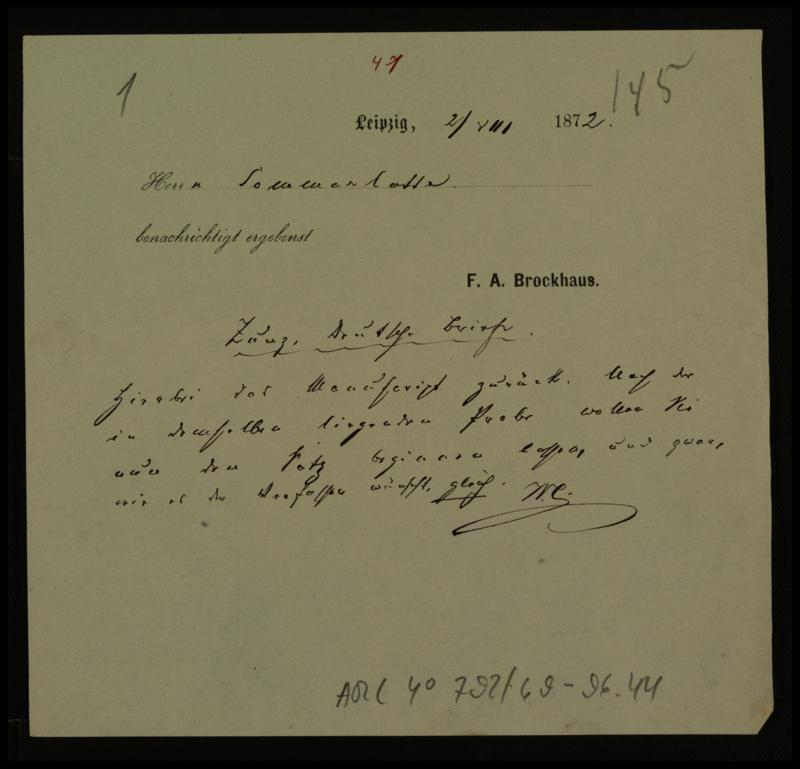 41
1
145
Leipzig, 2/VIII 1872.
Herrn Sommerlatte.
benachrichtigt ergebenst
F. A. Brockhaus.
Zunz, Deutsche Briefe.
Hierbei das Manuscript zurück. Nach der
in demselben liegenden Probe wollen Sie
nun den Satz beginnen lassen, und zwar,
wie es der Verfasser wünscht, gleich. W.C.
ARC 4° 792/ 69-96.44